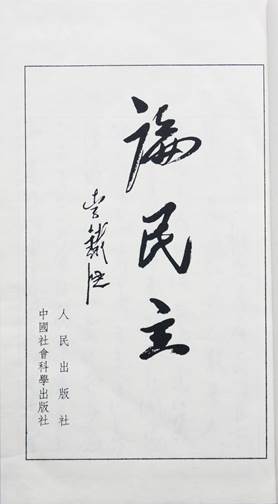 論民主
李鐵映
人民出版社
中國社會科學出版社